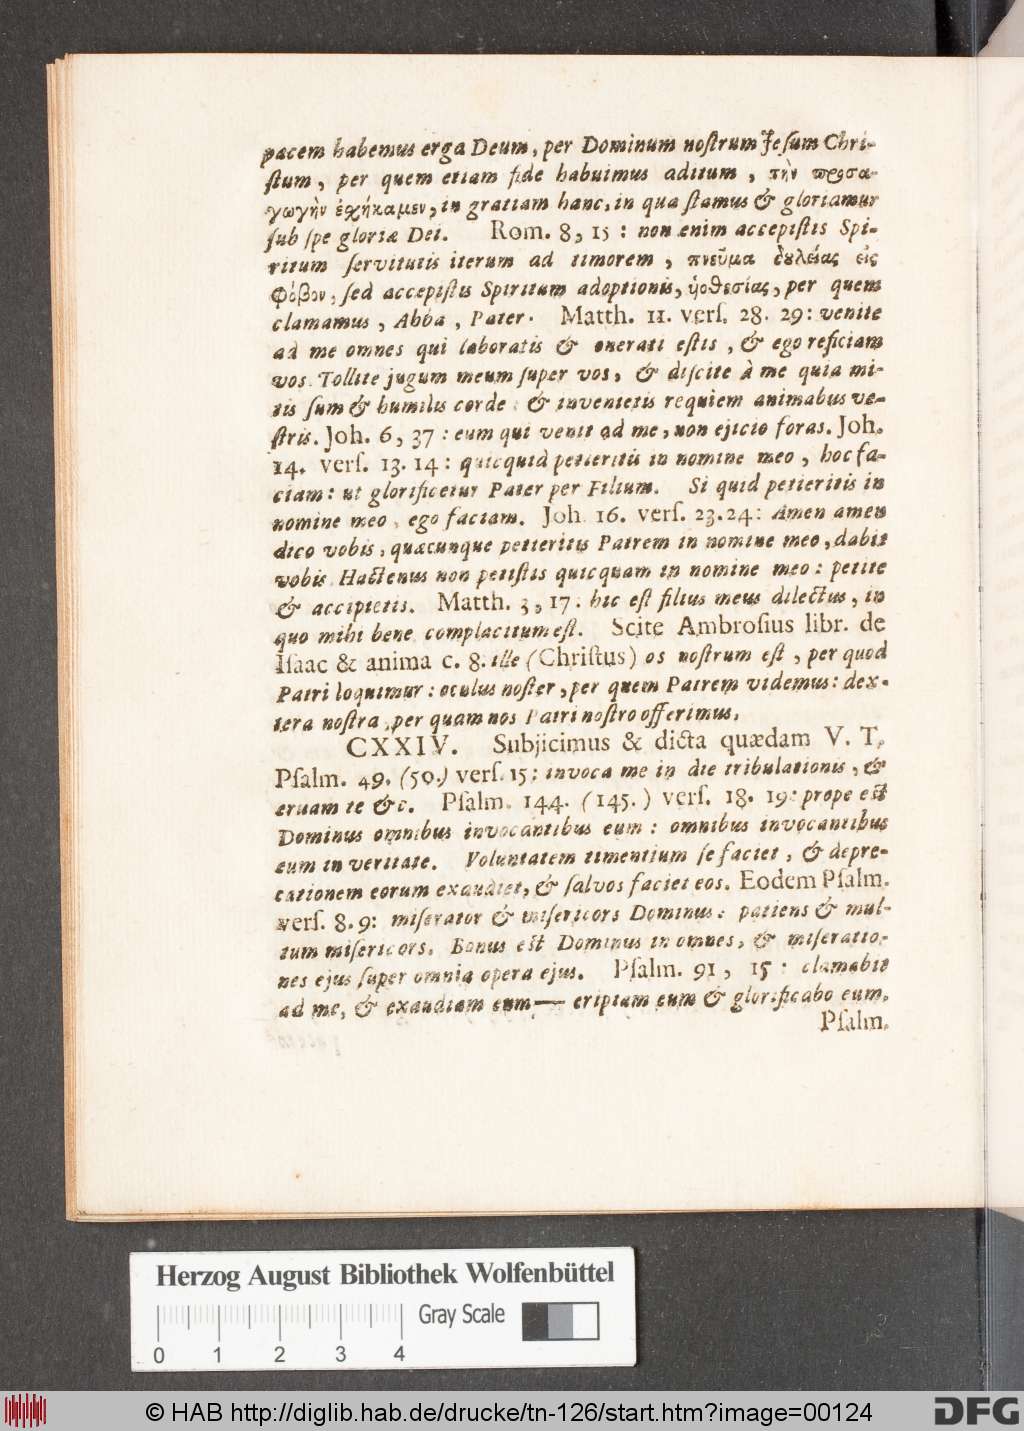 pacem habemus erga Deum, per Dominum noſtrum Jeſum Chri-
ſtum, per quem etiam fide habuimus aditum, τὴν προσα-
γωγὴν ἐσχήκαμεν, in gratiam hanc, in qua ſtamus & gloriamur
ſub ſpe gloriæ Dei. Rom. 8, 15: non enim accepiſtis Spi-
ritum ſervitutis iterum ad timorem, πνεῦμα δουλείας εἰς
Φόβον, ſed accepiſtis Spiritum adoptionis, ὑοθεσίας, per quem
clamamus, Abba, Pater. Matth. 11. verſ. 28. 29: venite
ad me omnes qui laboratis & onerati eſtis, & ego reficiam
vos. Tollite jugum meum ſuper vos, & diſcite à me quia mi-
tis ſum & humilis corde: & invenietis requiem animabus ve-
ſtris. Joh. 6, 37: eum qui venit ad me, non ejicio foras. Joh.
14. verſ. 13. 14: quicquid petieritis in nomine meo, hoc fa-
ciam: ut glorificetur Pater per Filium. Si quid petieritis in
nomine meo, ego faciam. Joh. 16. verſ. 23.24: Amen amen
dico vobis, quæcunque petieritis Patrem in nomine meo, dabit
vobis. Hactenus non petiſtis quicquam in nomine meo: petite
& accipietis. Matth. 3, 17: hic eſt filius meus dilectus, in
quo mihi bene complacitum eſt. Scite Ambroſius libr. de
Iſaac & anima c. 8. ille (Chriſtus) os noſtrum eſt, per quod
Patri loquimur: oculus noſter, per quem Patrem videmus: dex-
tera noſtra, per quam nos Patri noſtro offerimus.
CXXIV. Subjicimus & dicta quædam V. T.
Pſalm. 49. (50.) verſ. 15: invoca me in die tribulationis, &
eruam te &c. Pſalm. 144. (145.) verſ. 18. 19: prope eſt
Dominus omnibus invocantibus eum: omnibus invocantibus
eum in veritate. Voluntatem timentium ſe faciet, & depre-
cationem eorum exaudiet, & ſalvos faciet eos. Eodem Pſalm.
verſ. 8. 9: miſerator & miſericors Dominus: patiens & mul-
tum miſericors. Bonus eſt Dominus in omnes, & miſeratio-
nes ejus ſuper omnia opera ejus. Pſalm. 91, 15: clamabit
ad me, & exaudiam eum — eripiam eum & glorificabo eum.
Pſalm.
Herzog August Bibliothek Wolfenbüttel
Gray Scale
0 1 2 3 4
© HAB http://diglib.hab.de/drucke/tn-126/start.htm?image=00124
DFG